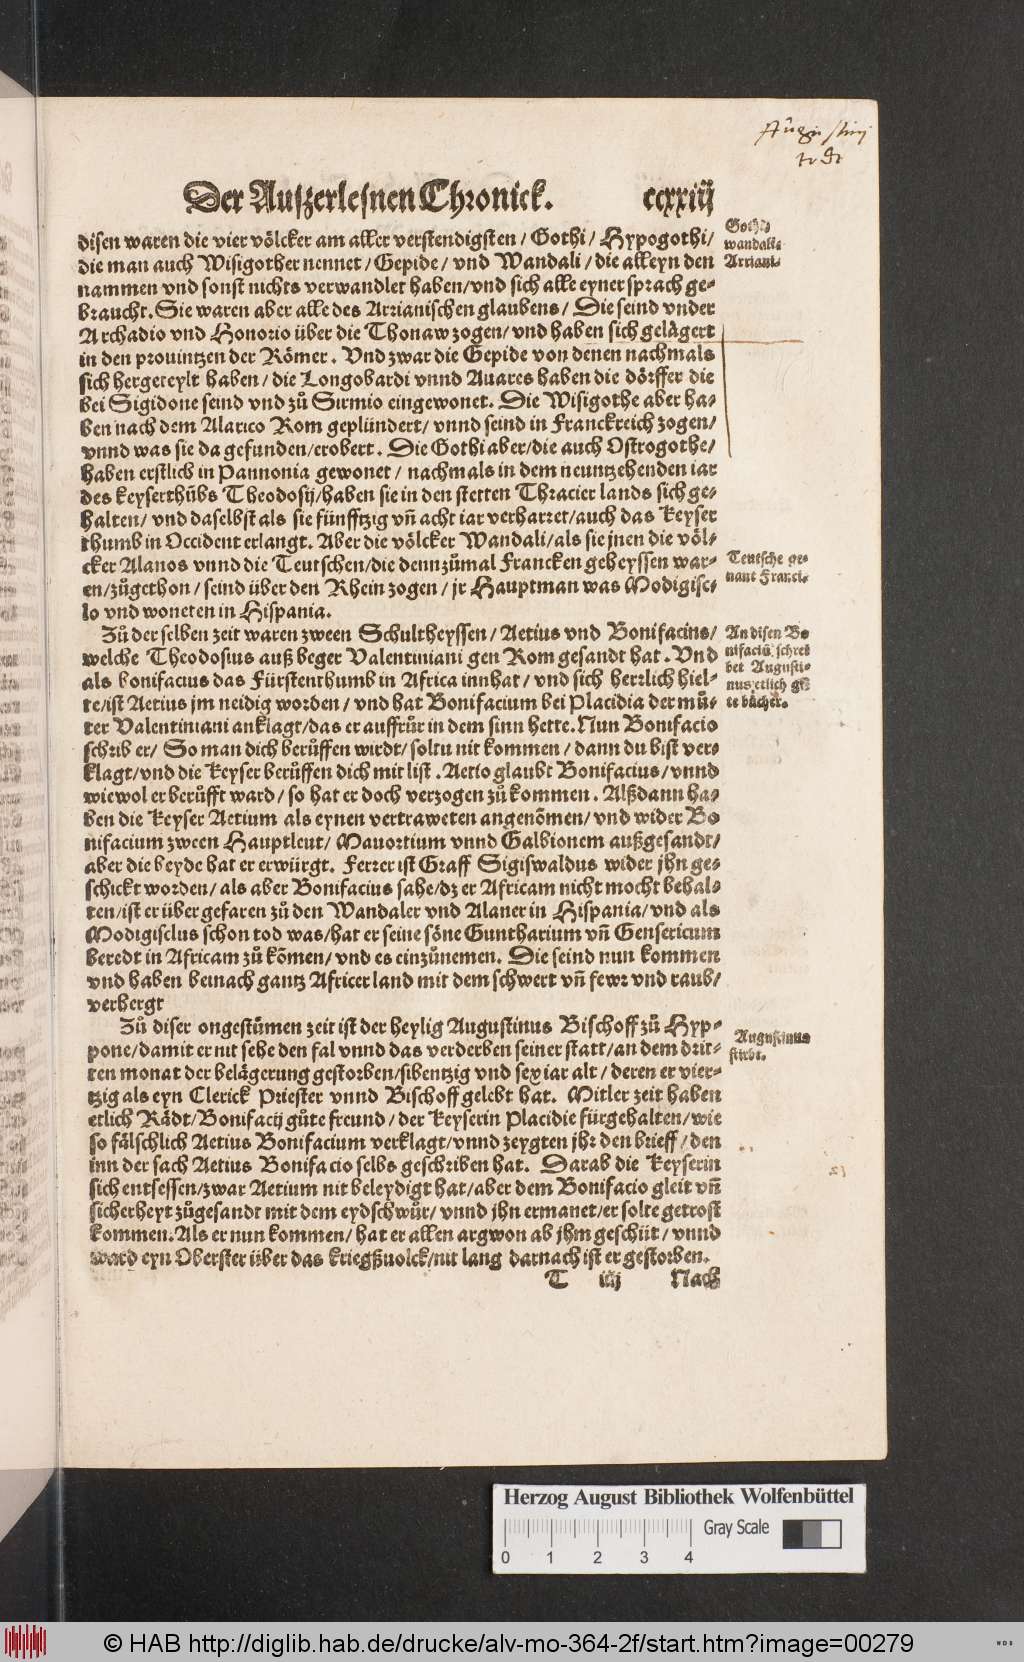 Augustinj
todt
Der Auszerlesnen Chronick. ccxxiiij
disen waren die vier völcker am aller verstendigsten / Gothi / Hypogothi /
die man auch Wisigother nennet / Gepide / vnd Wandali / die alleyn den
nammen vnd sonst nichts verwandlet haben / vnd sich alle eyner sprach ge-
braucht. Sie waren aber alle des Arrianischen glaubens / Die seind vnder
Archadio vnd Honorio über die Thonaw zogen / vnd haben sich gelågert
in den prouintzen der Römer. Vnd zwar die Gepide von denen nachmals
sich hergeteylt haben / die Longobardi vnnd Auares haben die dörffer die
bei Sigidone seind vnd zů Sirmio eingewonet. Die Wisigothe aber ha-
ben nach dem Alarico Rom geplündert / vnnd seind in Franckreich zogen /
vnnd was sie da gefunden / erobert. Die Gothi aber / die auch Ostrogothe /
haben erstlich in Pannonia gewonet / nachmals in dem neuntzehenden iar
des keyserthůbs Theodosij / haben sie in den stetten Thracier lands sich ge-
halten / vnd daselbst als sie fünfftzig vñ acht iar verharret / auch das Keyser
thumb in Occident erlangt. Aber die völcker Wandali / als sie jnen die völ-
cker Alanos vnnd die Teutschen / die dennzůmal Francken geheyssen war-
en / zůgethon / seind über den Rhein zogen / jr Hauptman was Modigisc-
lo vnd woneten in Hispania.
Zů der selben zeit waren zween Schultheyssen / Aetius vnd Bonifacius /
welche Theodosius auß beger Valentiniani gen Rom gesandt hat. Vnd
als bonifacius das Fürstenthumb in Africa innhat / vnd sich herrlich hiel-
te / ist Aetius jm neidig worden / vnd hat Bonifacium bei Placidia der mů-
ter Valentiniani anklagt / das er auffrůr in dem sinn hette. Nun Bonifacio
schrib er / So man dich berůffen wirdt / soltu nit kommen / dann du bist ver-
klagt / vnd die Keyser berůffen dich mit list. Aetio glaubt Bonifacius / vnnd
wiewol er berůfft ward / so hat er doch verzogen zů kommen. Alßdann ha-
ben die Keyser Aetium als eynen vertraweten angenõmen / vnd wider Bo
nifacium zween Hauptleut / Mauortium vnnd Galbionem außgesandt /
aber die beyde hat er erwürgt. Ferrer ist Graff Sigiswaldus wider jhn ge-
schickt worden / als aber Bonifacius sahe / dz er Africam nicht mocht behal-
ten / ist er über gefaren zů den Wandaler vnd Alaner in Hispania / vnd als
Modigisclus schon tod was / hat er seine söne Guntharium vñ Gensericum
beredt in Africam zů kõmen / vnd es einzůnemen. Die seind nun kommen
vnd haben beinach gantz Africer land mit dem schwert vñ fewr vnd raub /
verhergt
Zů diser ongestümen zeit ist der heylig Augustinus Bischoff zů Hyp-
pone / damit er nit sehe den fal vnnd das verderben seiner statt / an dem drit-
ten monat der belågerung gestorben / sibentzig vnd sex iar alt / deren er vier-
tzig als eyn Clerick Priester vnnd Bischoff gelebt hat. Mitler zeit haben
etlich Rådt / Bonifacij gůte freund / der Keyserin Placidie fürgehalten / wie
so fälschlich Aetius Bonifacium verklagt / vnnd zeygten jhr den brieff / den
inn der sach Aetius Bonifacio selbs geschriben hat. Darab die Keyserin
sich entsessen / zwar Aetium nit beleydigt hat / aber dem Bonifacio gleit vñ
sicherheyt zůgesandt mit dem eydschwůr / vnnd jhn ermanet / er solte getrost
kommen. Als er nun kommen / hat er allen argwon ab jhm geschüt / vnnd
ward eyn Oberster über das kriegßuolck / nit lang darnach ist er gestorben.
T iiij Nach
Gothi
wandali-
Arriani-
Teutsche ge-
nant Franci-
An disen Bo
nifaciũ schreib
bet Augusti-
nus etlich gů
te bücher.
Augustinus
stirbt.
Herzog August Bibliothek Wolfenbüttel
Gray Scale
0 1 2 3 4
© HAB http://diglib.hab.de/drucke/alv-mo-364-2f/start.htm?image=00279